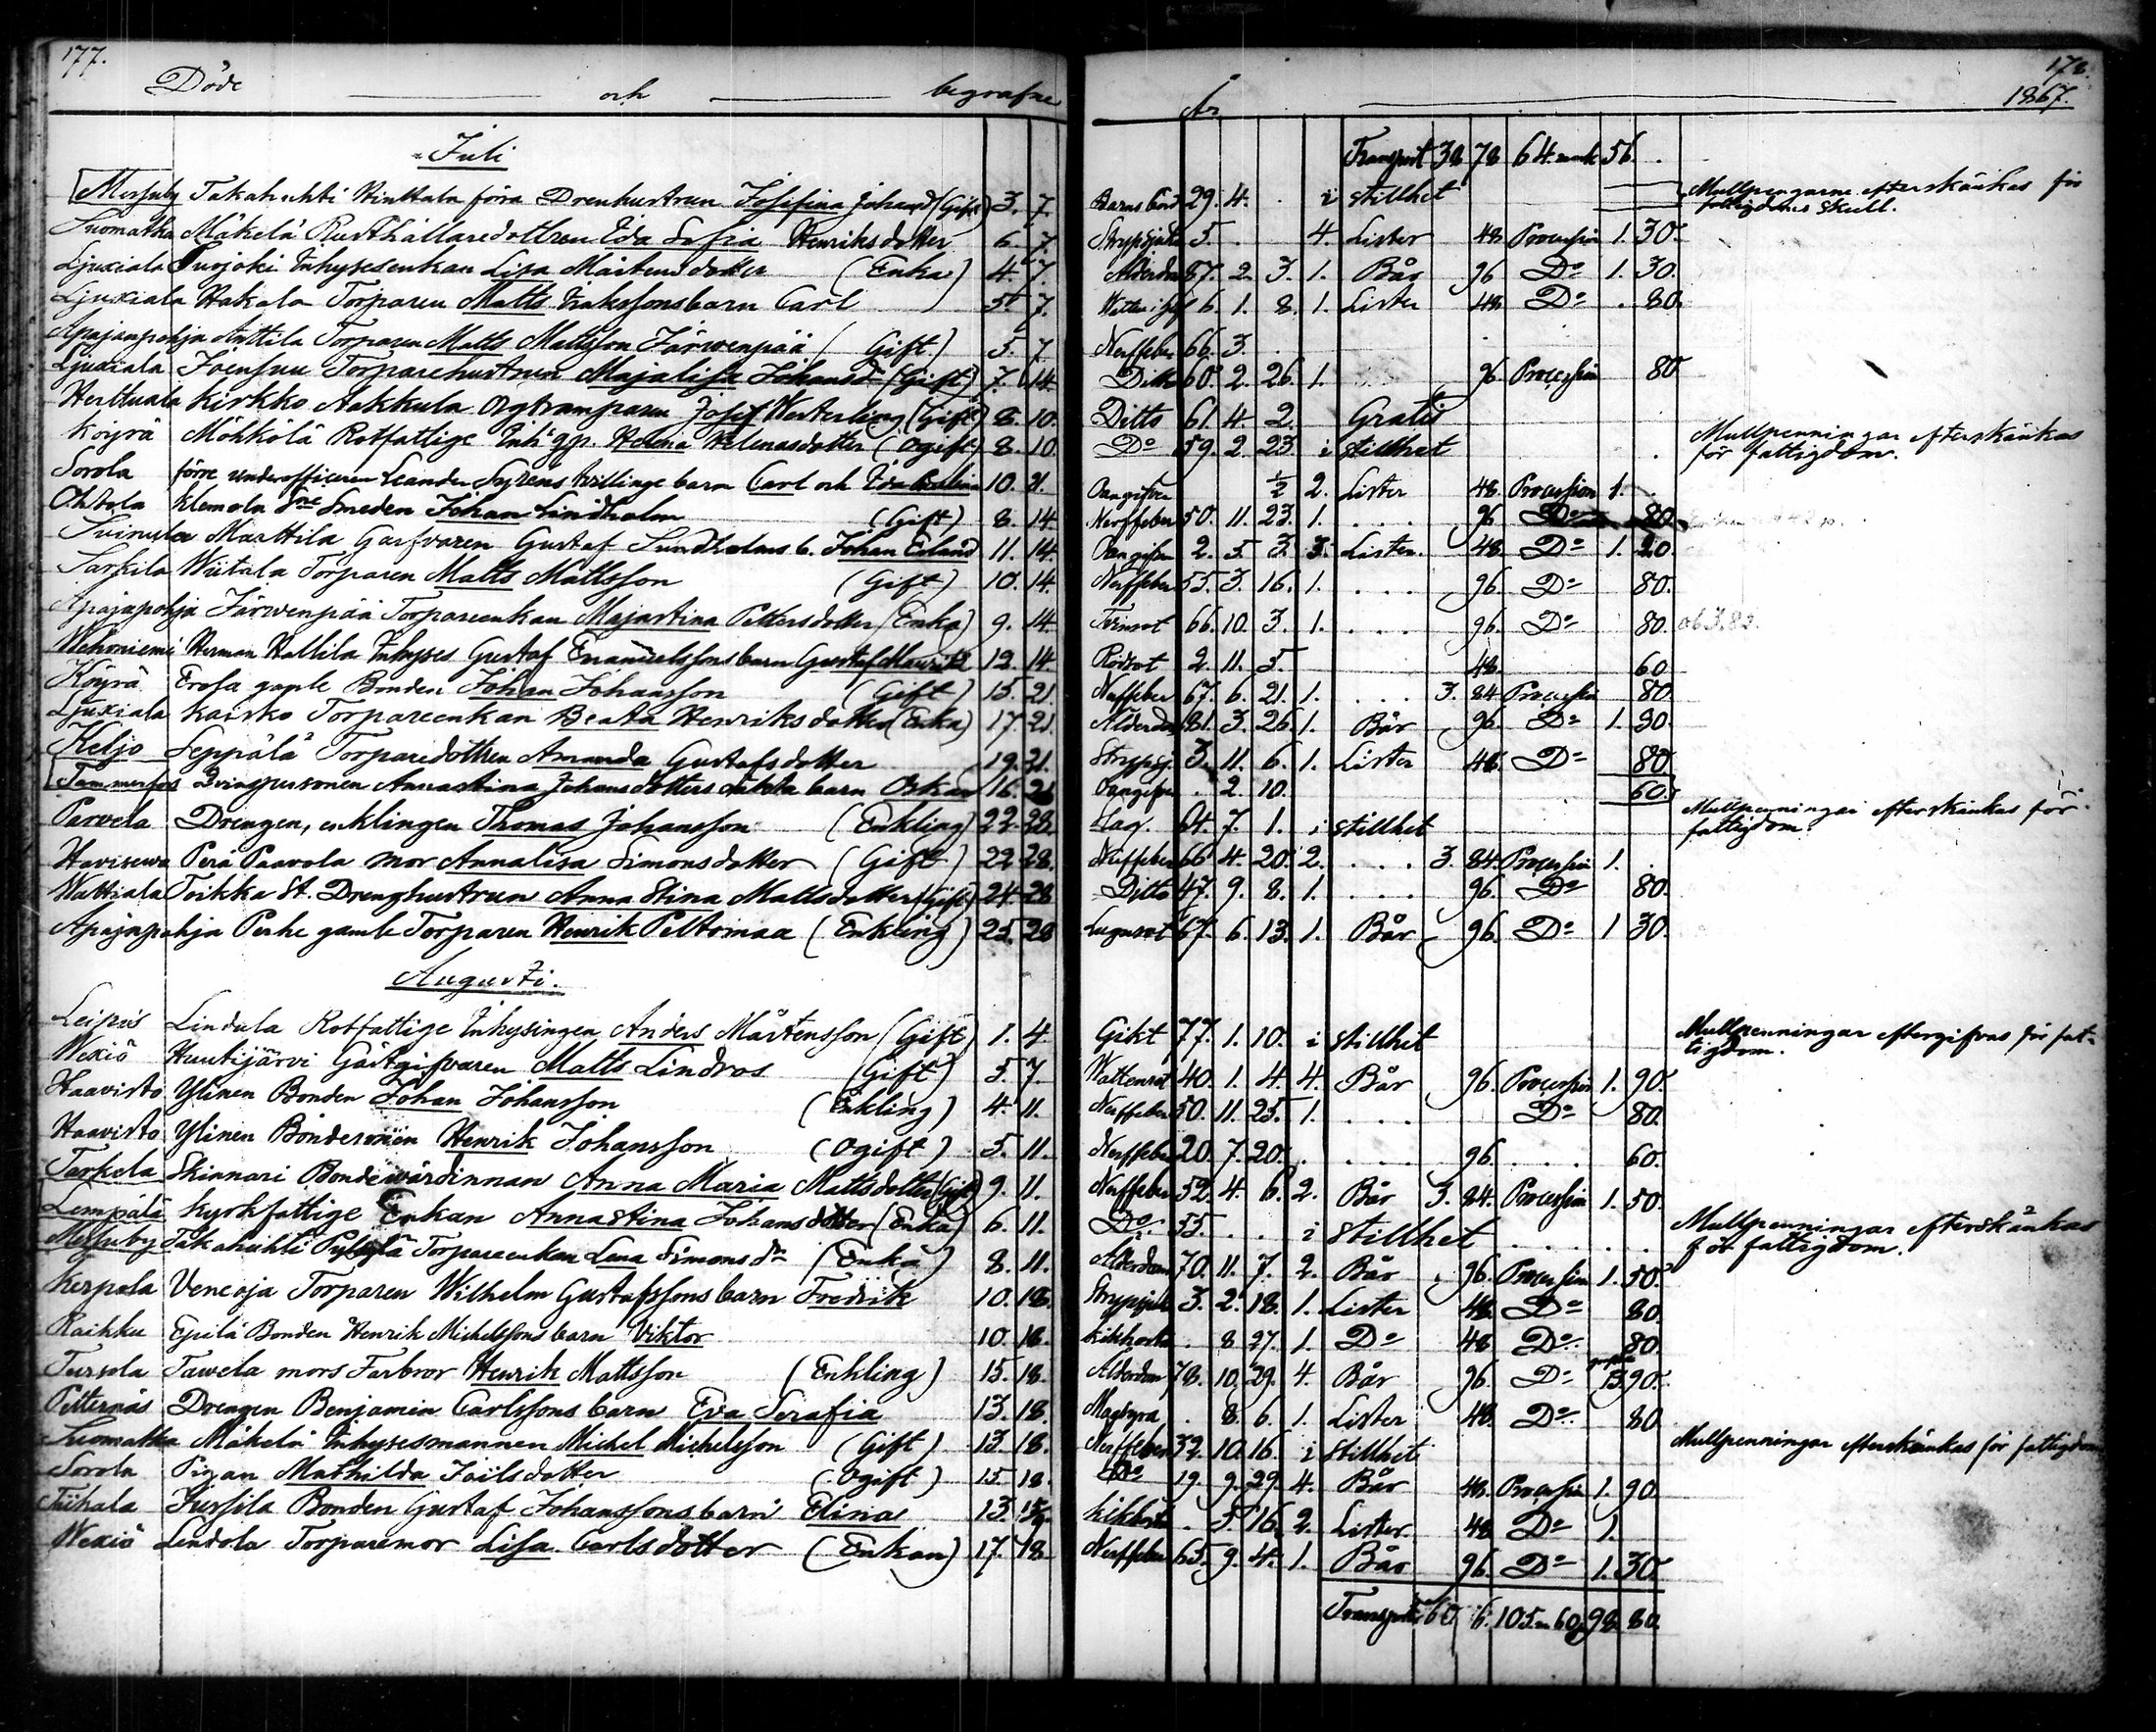 177. 178.
Döde och begrafne År 1867.
Juli Transport 38 78 64 mark 56.
Messuby Takahuhti Hinttala förra Drenhustrun Josefina Johansd (Gift) 3. 7. Barns börd 29. 4. . i stillhet Mullpengarne efterskänkas för
fattigdoms skull.
Suomatka Mäkelä Rusthållaredottren Eda Sofia Henriksdotter 6. 7. Strypsjuka 5. . . 4. Lister 48 Procession 1. 30.
Ljuxiala Suojoki Inhysesenkan Lisa Mårtensdotter (Enka) 4. 7. Ålderdom 87. 2. 3. 1. Bår 96 Do 1. 30.
Ljuxiala Hakala Torparen Matts Isakssons barn Carl 5. 7. 6. 1. 8. 1. Lister 48 Do . 80.
Apajanpohja Anttila Torparen Matts Mattsson Järwenpää (Gift) 5. 7. Nerffeber 66. 3.
Ljuxiala Joensuu Torparehustrun Majalisa Johansd. (Gift) 7. 14. Ditto 60. 2. 26. 1. 96 Procession 80
Herttuala Kirkko Aakkula Josef Westerling (Gift) 8. 10. Ditto 61. 4. 2. Gratis
Köyrä Möhkölä Rotfattige Inh. qp. Helena Helenasdotter (ogift) 8. 10. Do 59. 2. 23. i stillhet Mullpenningar efterskänkas
för fattigdom.
Sorola förre underofficeren Leander Syrens tvillinge barn Carl och Eda 10. 21. Oangifven ½ 2. Lister 48. Procession 1.
Ohtola Klemola Smeden Johan Lindholm (Gift) 8. 14. Nerffeber 50. 11. 23. 1. . . . 96 Do 80.
Suinula Marttila Garfvaren Gustaf Sundholms b. Johan Erland 11. 14. Oangifven 2. 5. 3. 3. Lister 48. Do 1. 20.
Sarkila Wiitala Torparen Matts Mattsson (Gift) 10. 14. Nerffeber 55. 3. 16. 1. . . . 96 Do 80.
Apajapohja Järwenpää Torpareenkan Majastina Pettersdotter (Enka) 9. 14. Tvinsot 66. 10. 3. 1. . . . 96. Do 80.
Wehoniemi Herman Hallila Inhyses Gustaf Emanuelssons barn Gustaf Mauritz 12. 14. Rödsot 2. 11. 5. 48. 60
Köyrä Erola gamle Bonden Johan Johansson (Gift) 15. 21. Nerffeber 67. 6. 21. 1. . . . 3. 84 Procession 80.
Ljuxiala Kaisko Torpareenkan Beata Henriksdotter (Enka) 17. 21. Ålderdom 81. 3. 26. 1. Bår 96. Do 1. 30.
Keljo Seppälä Torparedottren Amanda Gustafsdotter 19. 21. Strypsj. 3. 11. 6. 1. Lister 48. Do 80.
Tammerfors Qvinspersonen Annastina Johansdotters oäkta barn Oskar 16. 21 Oangifven . 2. 10. 60.
Parvela Drengen, enklingen Thomas Johansson (Enkling) 22. 28. Slag. 64. 7. 1. i stillhet Mullpenningar efterskänkas för
fattigdom.
Havisewa Perä Paavola mor Annalisa Simonsdotter (Gift) 22 28. Nerffeber 66 4. 20. 2. . . . 3. 84. Procession 1.
Wattiala Toikka St. Drenghustrun Anna Stina Mattsdotter (Gift) 24. 28 Ditto 47. 9. 8. 1. . . . 96. Do 80.
Apajapohja Perhe gamle Torparen Henrik Peltomaa (Enkling) 25. 28 Lungsot 67. 6. 13. 1. Bår 96. Do 1 30.
Augusti.
Leipis Lindula Rotfattige Inhysingen Anders Mårtensson (Gift) 1. 4. Gikt 77. 1. 10. i stillhet Mullpenningar eftergifvas för fat-
tigdom.
Wexiö Huutijärvi Gästgifvaren Matts Lindros (Gift) 5. 7. Wattensot 40. 1. 4. 4. Bår 96. Procession 1. 90.
Haavisto Ylinen Bonden Johan Johansson (Enkling) 4. 11. Nerffeber 50. 11. 25. 1. . . . Do 80.
Haavisto Ylinen Bondesonen Henrik Johansson (ogift) 5. 11. Nerffeber 20. 7. 20. . . . 96. . . . 60.
Tarkela Skinnari Bondewärdinnan Anna Maria Mattsdotter (Gift) 9. 11. Nerffeber 52. 4. 6. 2. Bår 3. 84. Procession 1. 50.
Lempälä Kyrkfattige Enkan Annastina Johansdotter (Enka) 6. 11. Do 55. . . i stillhet . . . Mullpenningar efterskänkas
för fattigdom.
Messuby Takahuhti Pyhylä Torpareenkan Lena Simonsdr (Enka) 8. 11. Ålderdom 70. 11. 7. 2. Bår 96. Procession 1. 50.
Kerpola Veneoja Torparen Wilhelm Gustafssons barn Fredrik 10. 18. Strypsjuk 3. 2. 18. 1. Lister 48. Do 80.
Raikku Epilä Bonden Henrik Michelssons barn Viktor 10. 18. Kikhosta . 8. 27. 1. Do 48 Do 80.
Tursola Tawela mors Farbror Henrik Mattsson (Enkling) 15. 18. Ålderdom 78. 10. 29. 4. Bår 96. Do 90.
Petternäs Drengen Benjamin Carlssons barn Eva Serafia 13. 18. Magsyra . 8. 6. 1. Lister 48. Do 80.
Suomatka Mäkelä Inhysesmannen Michel Michelsson (Gift) 13. 18. Nerffeber 32. 10. 16. i stillhet Mullpenningar efterskänkas för fattigdom
Sorola Pigan Mathilda Joilsdotter (ogift) 15. 18. Do 19. 9. 29. 4. Bår 48. Procession 1. 90.
Tiihala Jussila Bonden Gustaf Johanssons barn Elina 13. Kikhosta . 5. 16. 2. Lister 48 Do 1.
Wexiö Lendola Torparemor Lisa Carlsdotter (Enkan) 17. 18 Nerffeber 65. 9. 4. 1. Bår 96. Do 1. 30.
Transport 60. 6. 105 m 60 p 98. 80.